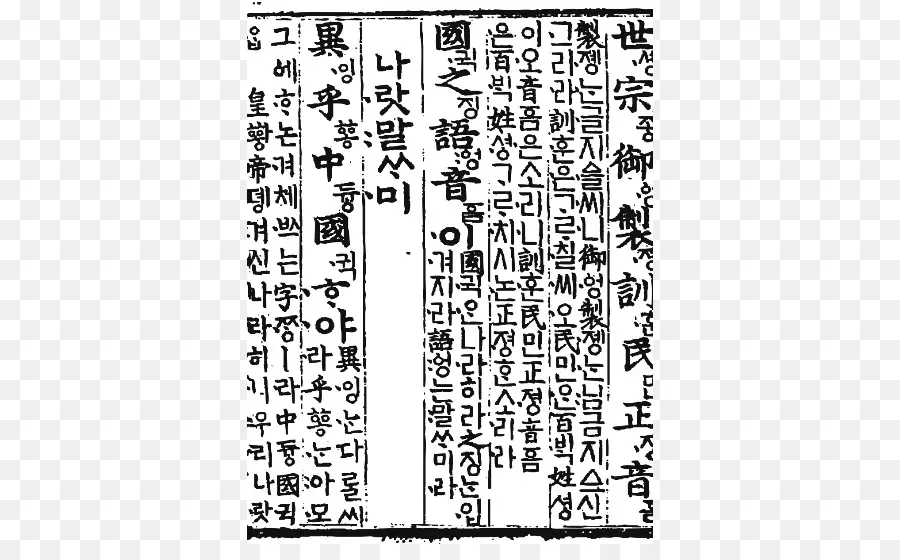 世솅宗조ᇰ御ᅌᅥᆼ製졩訓훈民민正져ᇰ音ᅙᅳᆷ
製·졩·ᄂᆞᆫ·글지·ᅀᅳᆯ·씨·니御·ᅌᅥᆼ製·졩·ᄂᆞᆫ:님·금:지ᅀᅳ·샨
·그·리·라訓·훈·은ᄀᆞᄅᆞ·칠·씨·오民민·ᄋᆞᆫ百·ᄇᆡᆨ姓·셔ᇰ
·이·오音ᅙᅳᆷ·은소·리·니訓·훈民민正·져ᇰ音ᅙᅳᆷ
·은百·ᄇᆡᆨ姓·셔ᇰᄀᆞᄅᆞ·치시·논正·져ᇰᄒᆞᆫ소·리·라
國·귁之징語:ᅌᅥᆼ音ᅙᅳᆷ·이
國·귁·ᄋᆞᆫ나·라히·라之징·ᄂᆞᆫ·입
·겨지·라語:ᅌᅥᆼ·는:말ᄊᆞ·미·라
나·랏:말ᄊᆞ·미
異·잉乎ᅘᅩᆼ中듀ᇰ國·귁·ᄒᆞ·야
異·잉·ᄂᆞᆫ다ᄅᆞᆯ·씨
·라乎ᅘᅩᆼ·ᄂᆞᆫ:아·모
그ᅌᅦ·ᄒᆞ논·겨체·ᄡᅳ는字·ᄍᆞᆼㅣ·라中듀ᇰ國·귁
皇ᅘᅪᇰ帝·뎽:겨신나·라히·니우·리나·랏